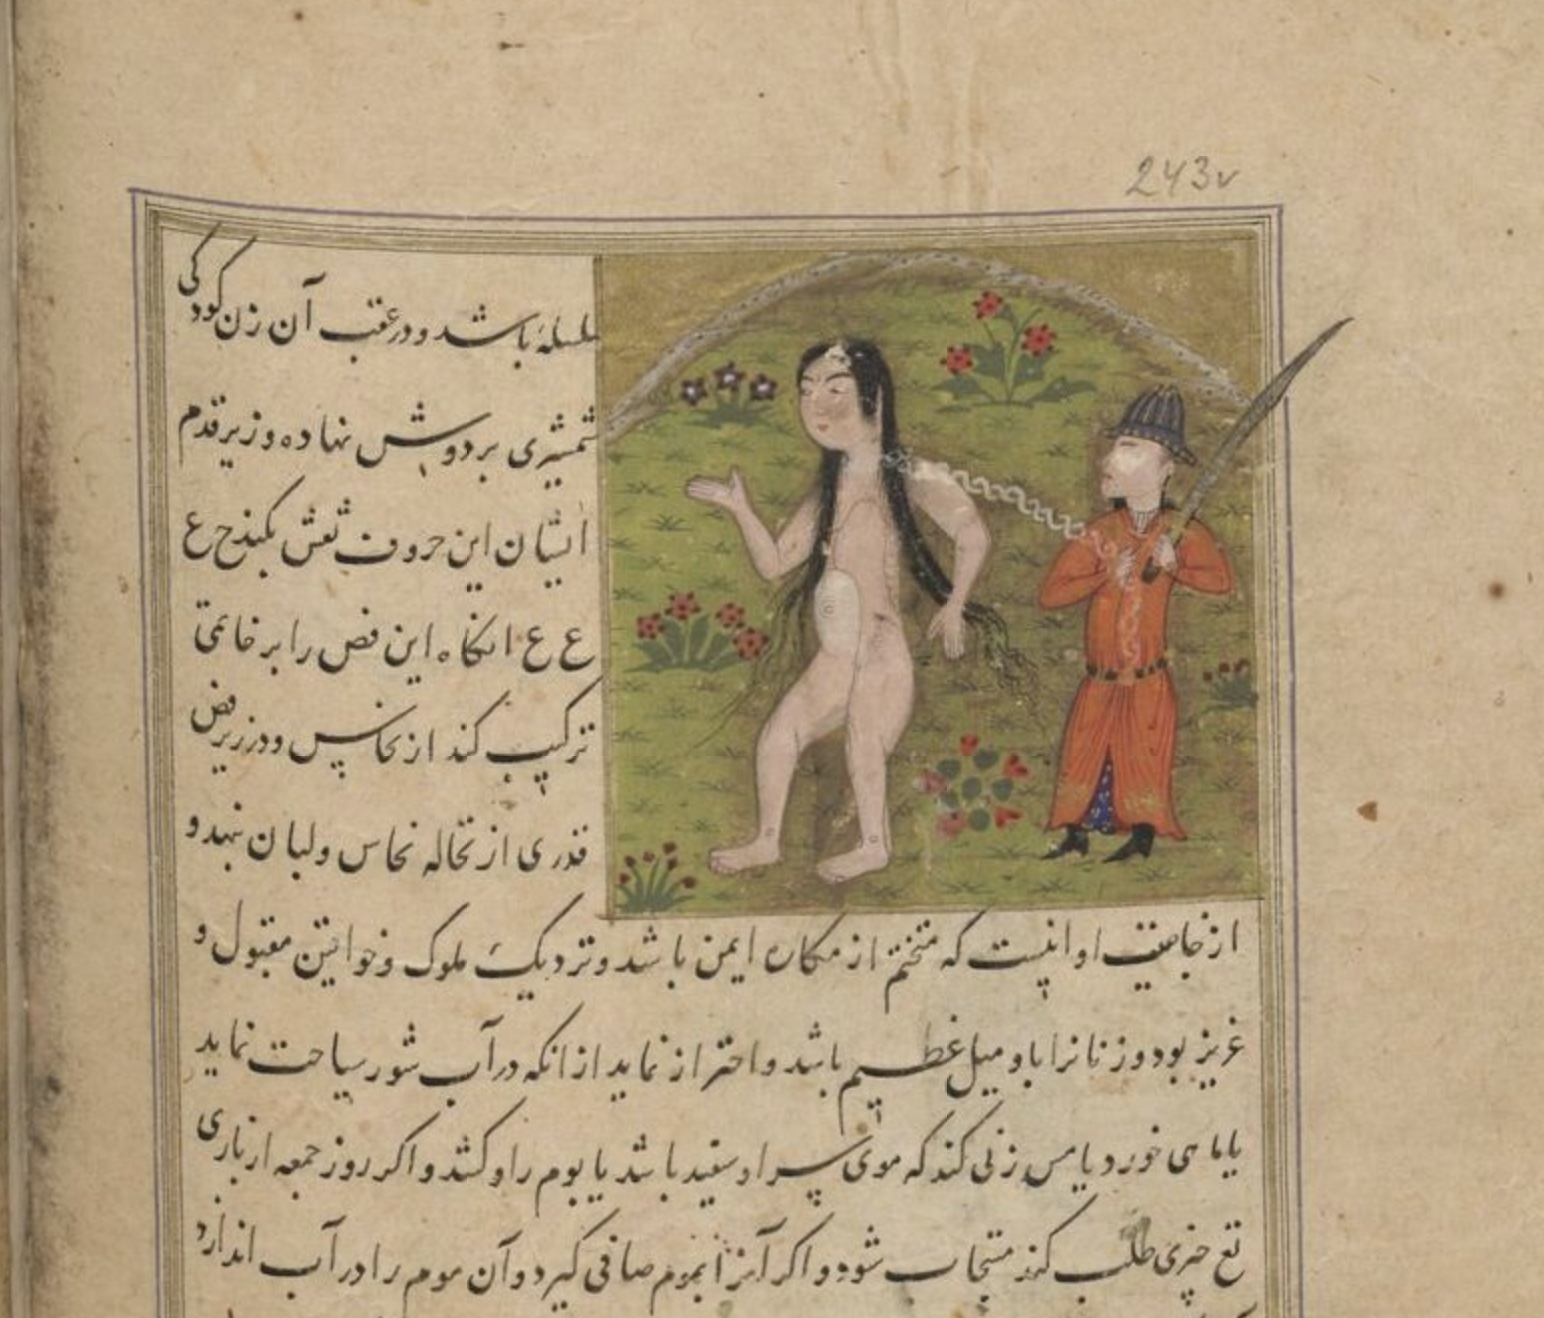 243v
سلسله باشد و در عقب آن زن کودکی
شمشیری بر دوش نهاده و زیر قدم
ایشان این حروف نقش بکند ح ع
ع ع انکاه این فص را بر خاتمی
ترکیب کند از نحاس و در زیر فص
قدری از نخاله نحاس و لبان نهد و
از خاصیت او اینست که متختم از مکاره ایمن باشد و نزدیک ملوک و خواتین مقبول و
عزیز بود و زنانرا باو میل عظیم باشد و احتراز نماید از انکه در آب شور سیاحت نماید
یا ماهی خورد یا مس زنی کند که موی سر او سفید باشد یا بوم را و کشد و اکر روز جمعه از باری
تع چیزی طلب کند مستجاب شود و اکر آنرا بموم صافی کیرد و آن موم را در آب اندازد